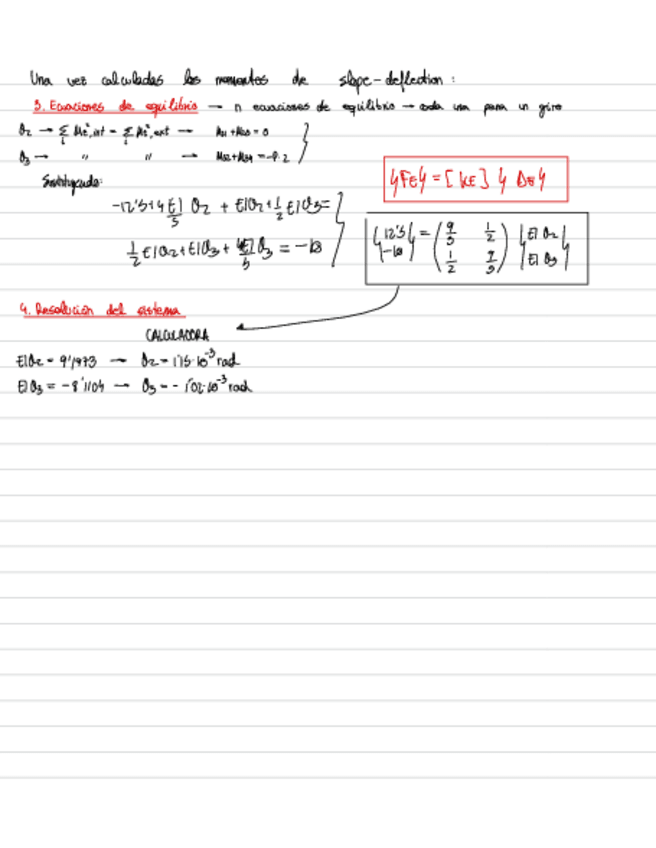 Una vez calculadas los momentos de slope-deflection:
3. Ecuaciones de equilibrio → n ecuaciones de equilibrio → cada una para un giro
θ2 → Σ Me,int = Σ Me,ext → M21 + M23 = 0
θ3 → " " →
Sustituyendo:
{FE} = [KE] {ΔE}
-12'5 + 4EI/5 θ2 + EIθ2 + 1/2 EIθ3 =
1/2 EIθ2 + EIθ3 + 4EI/5 θ3 = -18
{12'5 -18} = (9/5 1/2 1/2 9/5) {EIθ2 EIθ3}
4. Resolución del sistema
CALCULADORA
EIθ2 = → θ2 = 1'15·10^-3 rad
EIθ3 = → θ3 = - 1'02·10^-3 rad